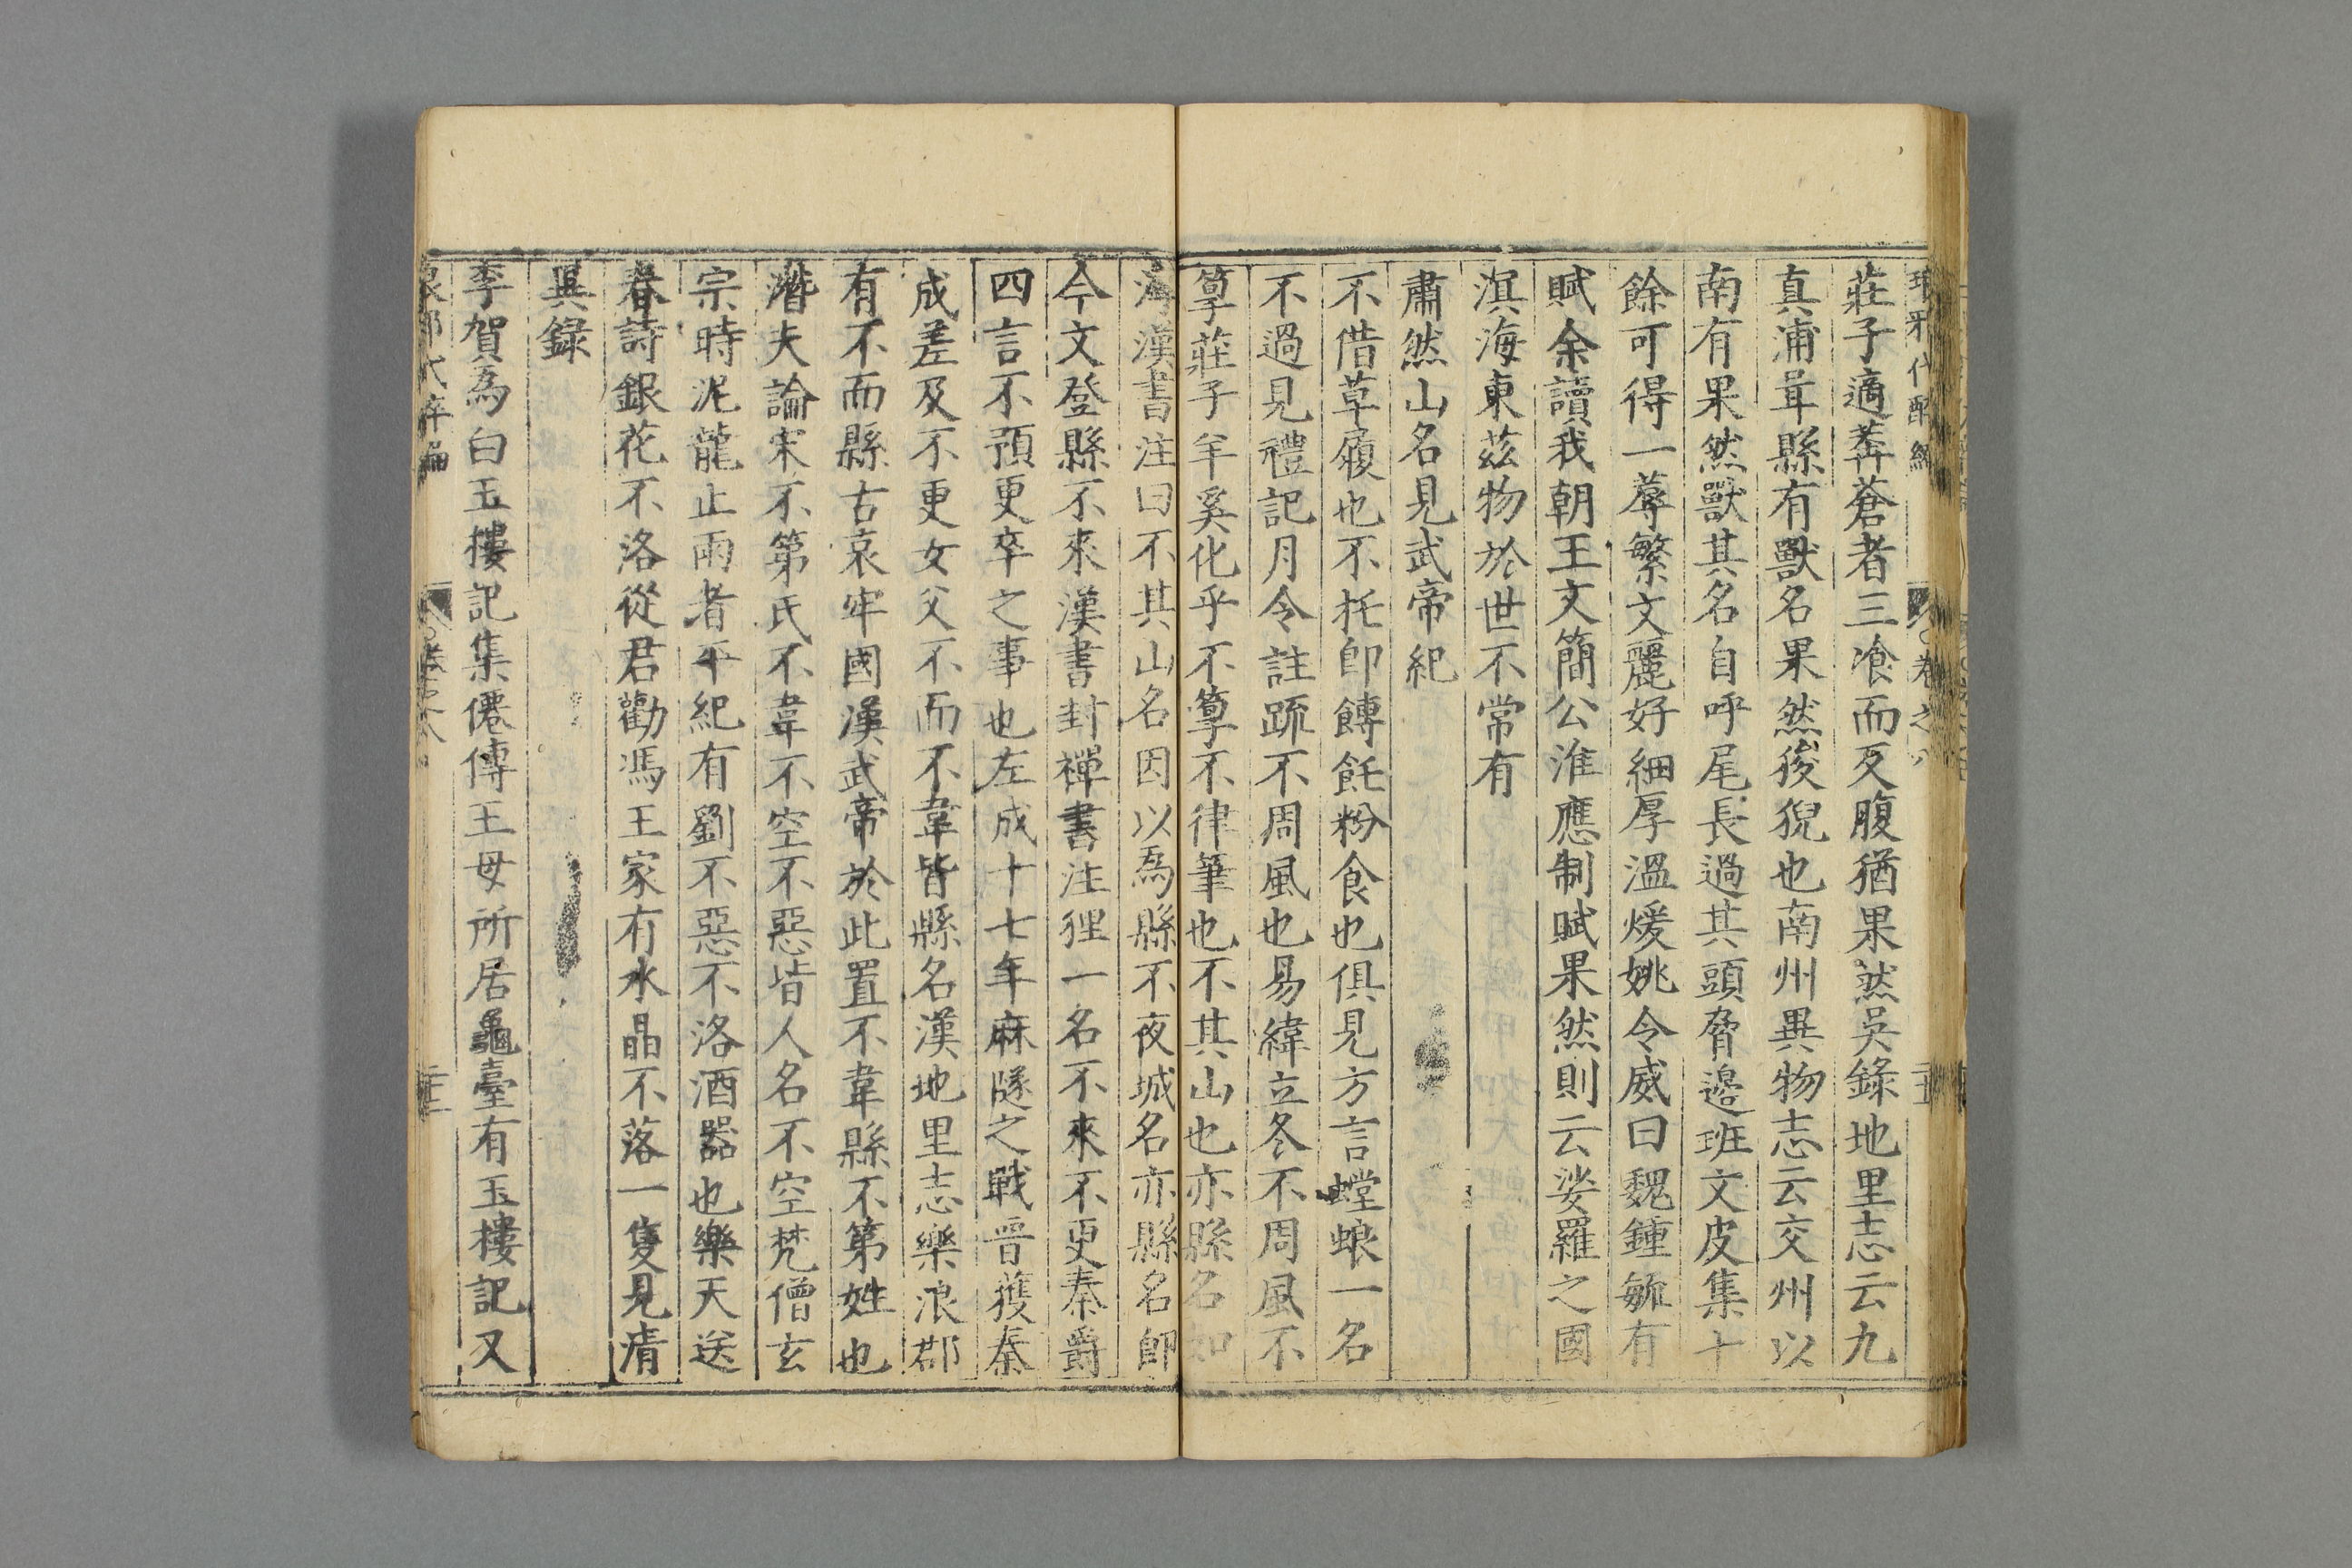 莊子適莽蒼者三飡而反腹猶果然吳錄地里志云九
真浦茸縣有獸名果然猨猊也南州異物志云交州以
南有果然獸其名自呼尾長過其頭脅邊班文皮集十
餘可得一蓐繁文麗好細厚溫煖姚令威曰魏鍾毓有
賦余讀我朝王文簡公淮應制賦果然則云娑羅之國
溟海東茲物於世不常有
肅然山名見武帝紀
不借草履也不托卽餺飥粉食也俱見方言螳蜋一名
不過見禮記月令註疏不周風也易緯立冬不周風不
䇞莊子羊奚化乎不䇞不律筆也不其山也亦縣名如
淳漢書注曰不其山名因以爲縣不夜城名亦縣名卽
今文登縣不來漢書封禪書注狸一名不來不更秦爵
四言不預更卒之事也左成十七年麻隧之戰晉獲秦
成差及不更女父不而不韋皆縣名漢地里志樂浪郡
有不而縣古哀牢國漢武帝於此置不韋縣不第姓也
潛夫論宋不第氏不韋不空不惡皆人名不空梵僧玄
宗時泥龍止雨者平紀有劉不惡不洛酒器也樂天送
春詩銀花不洛從君勸馮王家有水晶不落一隻見清
異錄
李賀爲白玉樓記集僊傳王母所居龜臺有玉樓記又